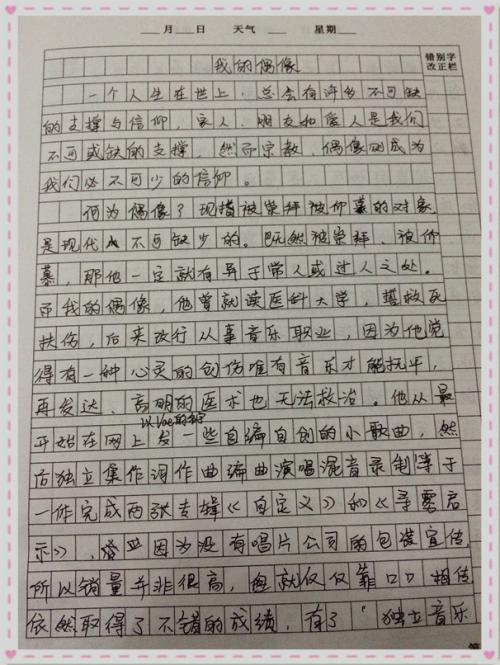 月 日 天气 星期
错别字
改正栏
我的偶像
一个人生在世上，总会有许多不可缺
的支撑与信仰，家人、朋友和爱人是我们
不可或缺的支撑，然而宗教、偶像则成为
我们必不可少的信仰。
何为偶像？现指被崇拜被仰慕的对象
是现代人不可缺少的。既然被崇拜、被仰
慕，那他一定就有异于常人或过人之处。
而我的偶像，他曾就读医科大学，誓救死
扶伤，后来改行从事音乐职业，因为他觉
得有一种心灵的创伤唯有音乐才能抚平，
再发达、高明的医术也无法救治。他从最
以Vae的
开始在网上发一些自编自创的小歌曲，然
后独立集作词作曲编曲演唱混音录制等于
一作完成两张专辑《自定义》和《寻雾启
示》，因为没有唱片公司的包装宣传
所以销量并非很高，但就仅仅靠口口相传
依然取得了不错的成绩，有了“独立音乐